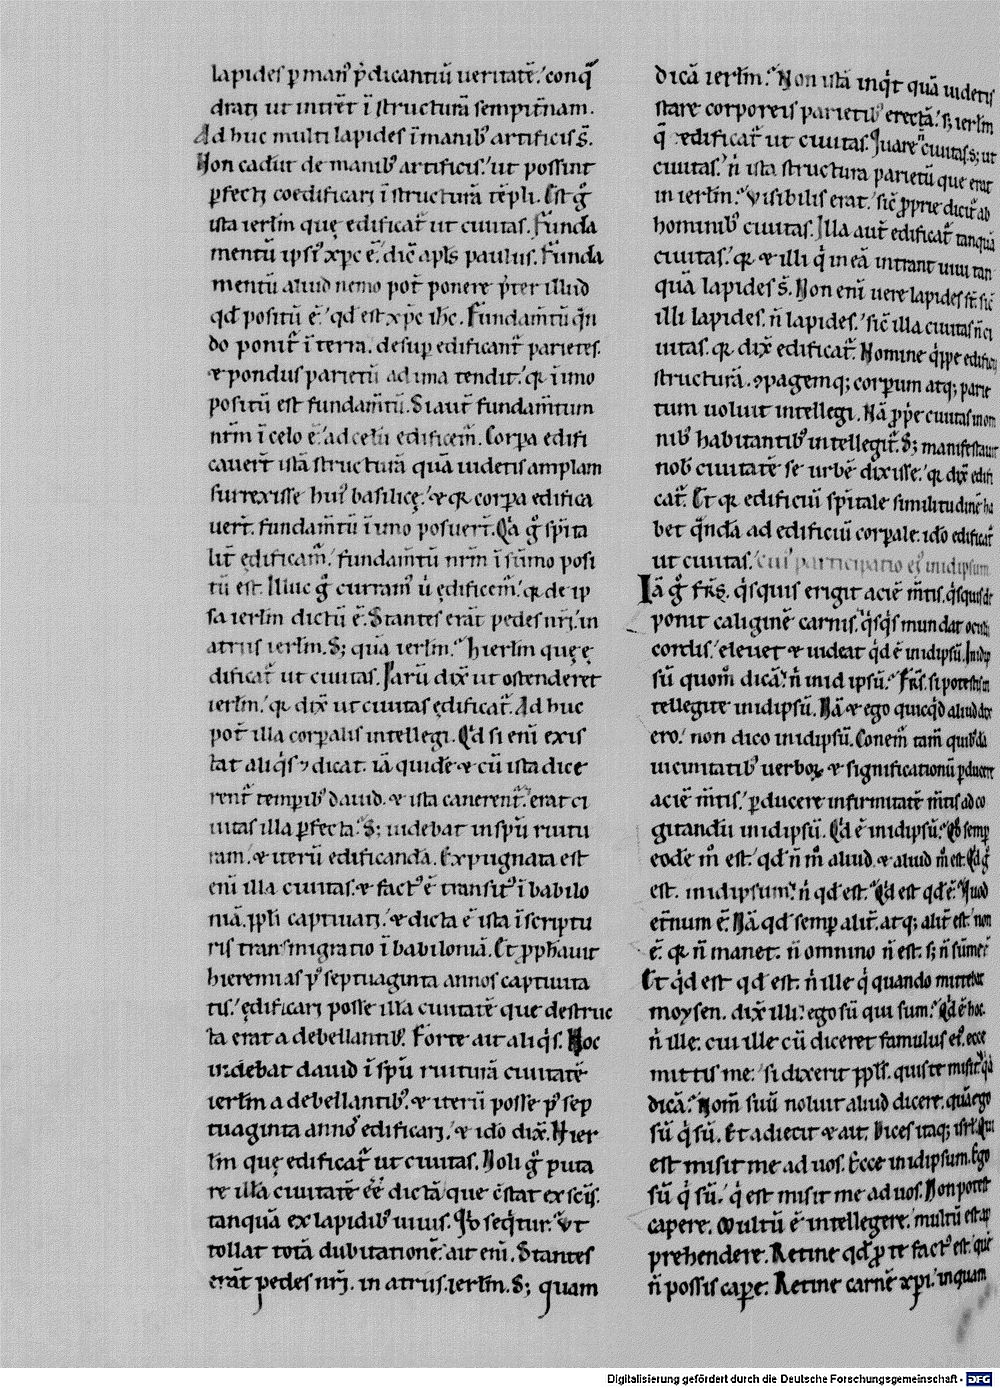 lapides p̱ man᷒ p̄dicantiū ueritatē. conq̄
dratı ut intrēt ī structurā sempit̄nam.
Ad huc multi lapides ī manib᷒ artificis s̄.
Non cadūt de manib᷒ artificis. ut possint
ꝑfectı coedificarı ī structurā tēpli. Est g̊
ista ierl̄m quę edificat᷑ ut ciuitas. Funda
mentū ipsi᷒ xp̄c ē. dic̄ apl̄s paulus. Funda
mentū aliud nemo pot̄ ponere p̄ter illud
qd̄ positū ē. qd̄ est xp̄c ih̄c. Fundam̄tū q̄n
do ponit᷑ ī terra. desuꝑ edificant᷑ parietes.
⁊ pondus parietū ad ima tendit. qꝛ ī imo
positū est fundam̄tū. Si aut̄ fundam̄tum
nr̄m ī celo ē. ad celū edificem᷒. Corꝑa edifi
cauer̄t istā structurā quā uidetis amplam
surrexisse hui᷒ basilicę. ⁊ qꝛ corꝑa edifica
uer̄t. fundam̄tū ī imo posuer̄t. Qa g̊ sp̄ita
lit̄ ędificam᷒. fundam̄tū nr̄m ī sūmo posi
tū est. Illuc g̊ curram᷒ ú ędificem᷒. qꝛ de ip
sa ierl̄m dictū ē. Stantes erāt pedes nr̄ı. in
atriis ierl̄m. S; quā ierl̄m. Hierl̄m quę ę
dificat᷑ ut ciuitas. Parū dix̄ ut ostenderet
ierl̄m. qꝛ dix̄ ut ciuitas ędificat᷑. Ad huc
pot̄ illa corꝑalis intellegi. Qd̄ si enī exis
tat aliq̄s ⁊ dicat. iā quidē ⁊ cū ista dice
rent᷑ temporib᷒ dauid. ⁊ ista canerent᷑. erat ci
uitas illa ꝑfecta. S; uidebat in sp̄u ruitu
ram. ⁊ iterū edificandā. Expugnata est
enī illa ciuitas. ⁊ fact᷒ ē transit᷒ ī babilo
niā. ppl̄i captiuatı. ⁊ dicta ē ista ī scriptu
ris transmigratio ī babiloniā. Et ꝓph̄auit
hieremias p᷒ septuaginta annos captiuita
tis. ędificarı posse illā ciuitatē que destruc
ta erat a debellantib᷒. Forte ait aliq̄s. Hoc
uidebat dauid ī sp̄u ruiturā ciuitatē
ierl̄m a debellantib᷒. ⁊ iterū posse p᷒ sep
tuaginta anno᷒ edificarı. ⁊ ido dix̄. Hier
l̄m quę edificat᷑ ut ciuitas. Noli g̊ puta
re illā ciuitatē ēē dictā que c̄stat ex sc̄ıs.
tanquā ex lapidib᷒ uiuis. Qd̄ seq̄tur. Vt
tollat totā dubitationē. ait enī. Stantes
erāt pedes nr̄ı. in atriis. ierl̄m. S; quam
dicā ierl̄m. Non istā inq̄t quā uidetis
stare corporeis parietib᷒ erectā. s; ierl̄m
q̄ ędificat᷑ ut ciuitas. Quare ciuitas. s; ut
ciuitas. n̄ ista structura parietū que erat
in ierl̄m. Visibilis erat. sic̄ ꝓprie dicit᷑ ab
hominib᷒ ciuitas. Illa aut̄ edificat᷑ tanquā
ciuitas. qꝛ ⁊ illi q̄ in eā intrant uiui tan
quā lapides s̄. Non enī uere lapides st̄. sic̄
illi lapides. n̄ lapides. sic̄ illa ciuitas n̄ ci
uitas. qꝛ dix̄ edificat᷑. Nomine q̄ppe edificij
structurā. ꝯpagemq; corꝑum atq; parie
tum uoluit intellegi. Nā ꝓpꝛe ciuitas in om
nib᷒ habitantib᷒ intellegit᷑. S; manifestauit
nob᷒ ciuitatē se urbē dixisse. qꝛ dix̄ edifi
cat᷑. Et qꝛ edificiū sp̄itale similitudinē ha
bet q̄ndā ad edificiū corꝑale. ido edificat᷑
ut ciuitas. cui᷒ participatio ei᷒ in idipsum
Iā g̊ fr̄s. q̄squis erigit aciē m̄tis. q̄squis de
ponit caliginē carnis. q̄sq̄s mundat oculū
cordis. eleuet ⁊ uideat q̄d ē in idipsū. In idip
sū quom̊ dicā. n̄ in id ipsū. Fr̄s. si potestis in
tellegite in idipsū. Nā ⁊ ego quicq̄d aliud dix
ero. non dico in idipsū. Conem᷒ tam̄ quib᷒dā
uicinitatib᷒ uerboꝝ ⁊ significationū ꝑducere
aciē m̄tis. ꝑducere infirmitatē m̄tis ad co
gitandū in idipsū. Qd̄ ē in idipsū. Qd̄ semꝑ
eodē m̊ est. qd̄ n̄ m̊ aliud. ⁊ aliud m̊ est. Qd̄ g̊
est. in idipsum. n̄ qd̄ est. Qd̄ est qd̄ ē. Quod
et̄num ē. Nā qd̄ semꝑ alit̄. atq; alit̄ est. non
ē. qꝛ n̄ manet. n̄ omnino n̄ est. s; n̄ sūme ē
Et q̄d est qd̄ est. n̄ ille q̄ quando mittebat
moysen. dix̄ illi. ego sū qui sum. Qd̄ ē hoc.
n̄ ille. cui ille cū diceret famulus ei᷒. ecce
mittis me. si dixerit ppl̄s. quis te misit. q̄d
dicā. Nom̄ suū noluit aliud dicere. quā ego
sū q̄ sū. Et adiecit ⁊ ait. Dices itaq; isrl̄. Qui
est misit me ad uos. Ecce in idipsum. Ego
sū q̄ sū. q̄ est misit me ad uos. Non potest
capere. Multū ē intellegere. multū est ap
prehendere. Retine qd̄ ꝓ te fact᷒ est. quē
n̄ possis caꝑe. Retine carnē xp̄i. in quam
Digitalisierung gefördert durch die Deutsche Forschungsgemeinschaft - DFG